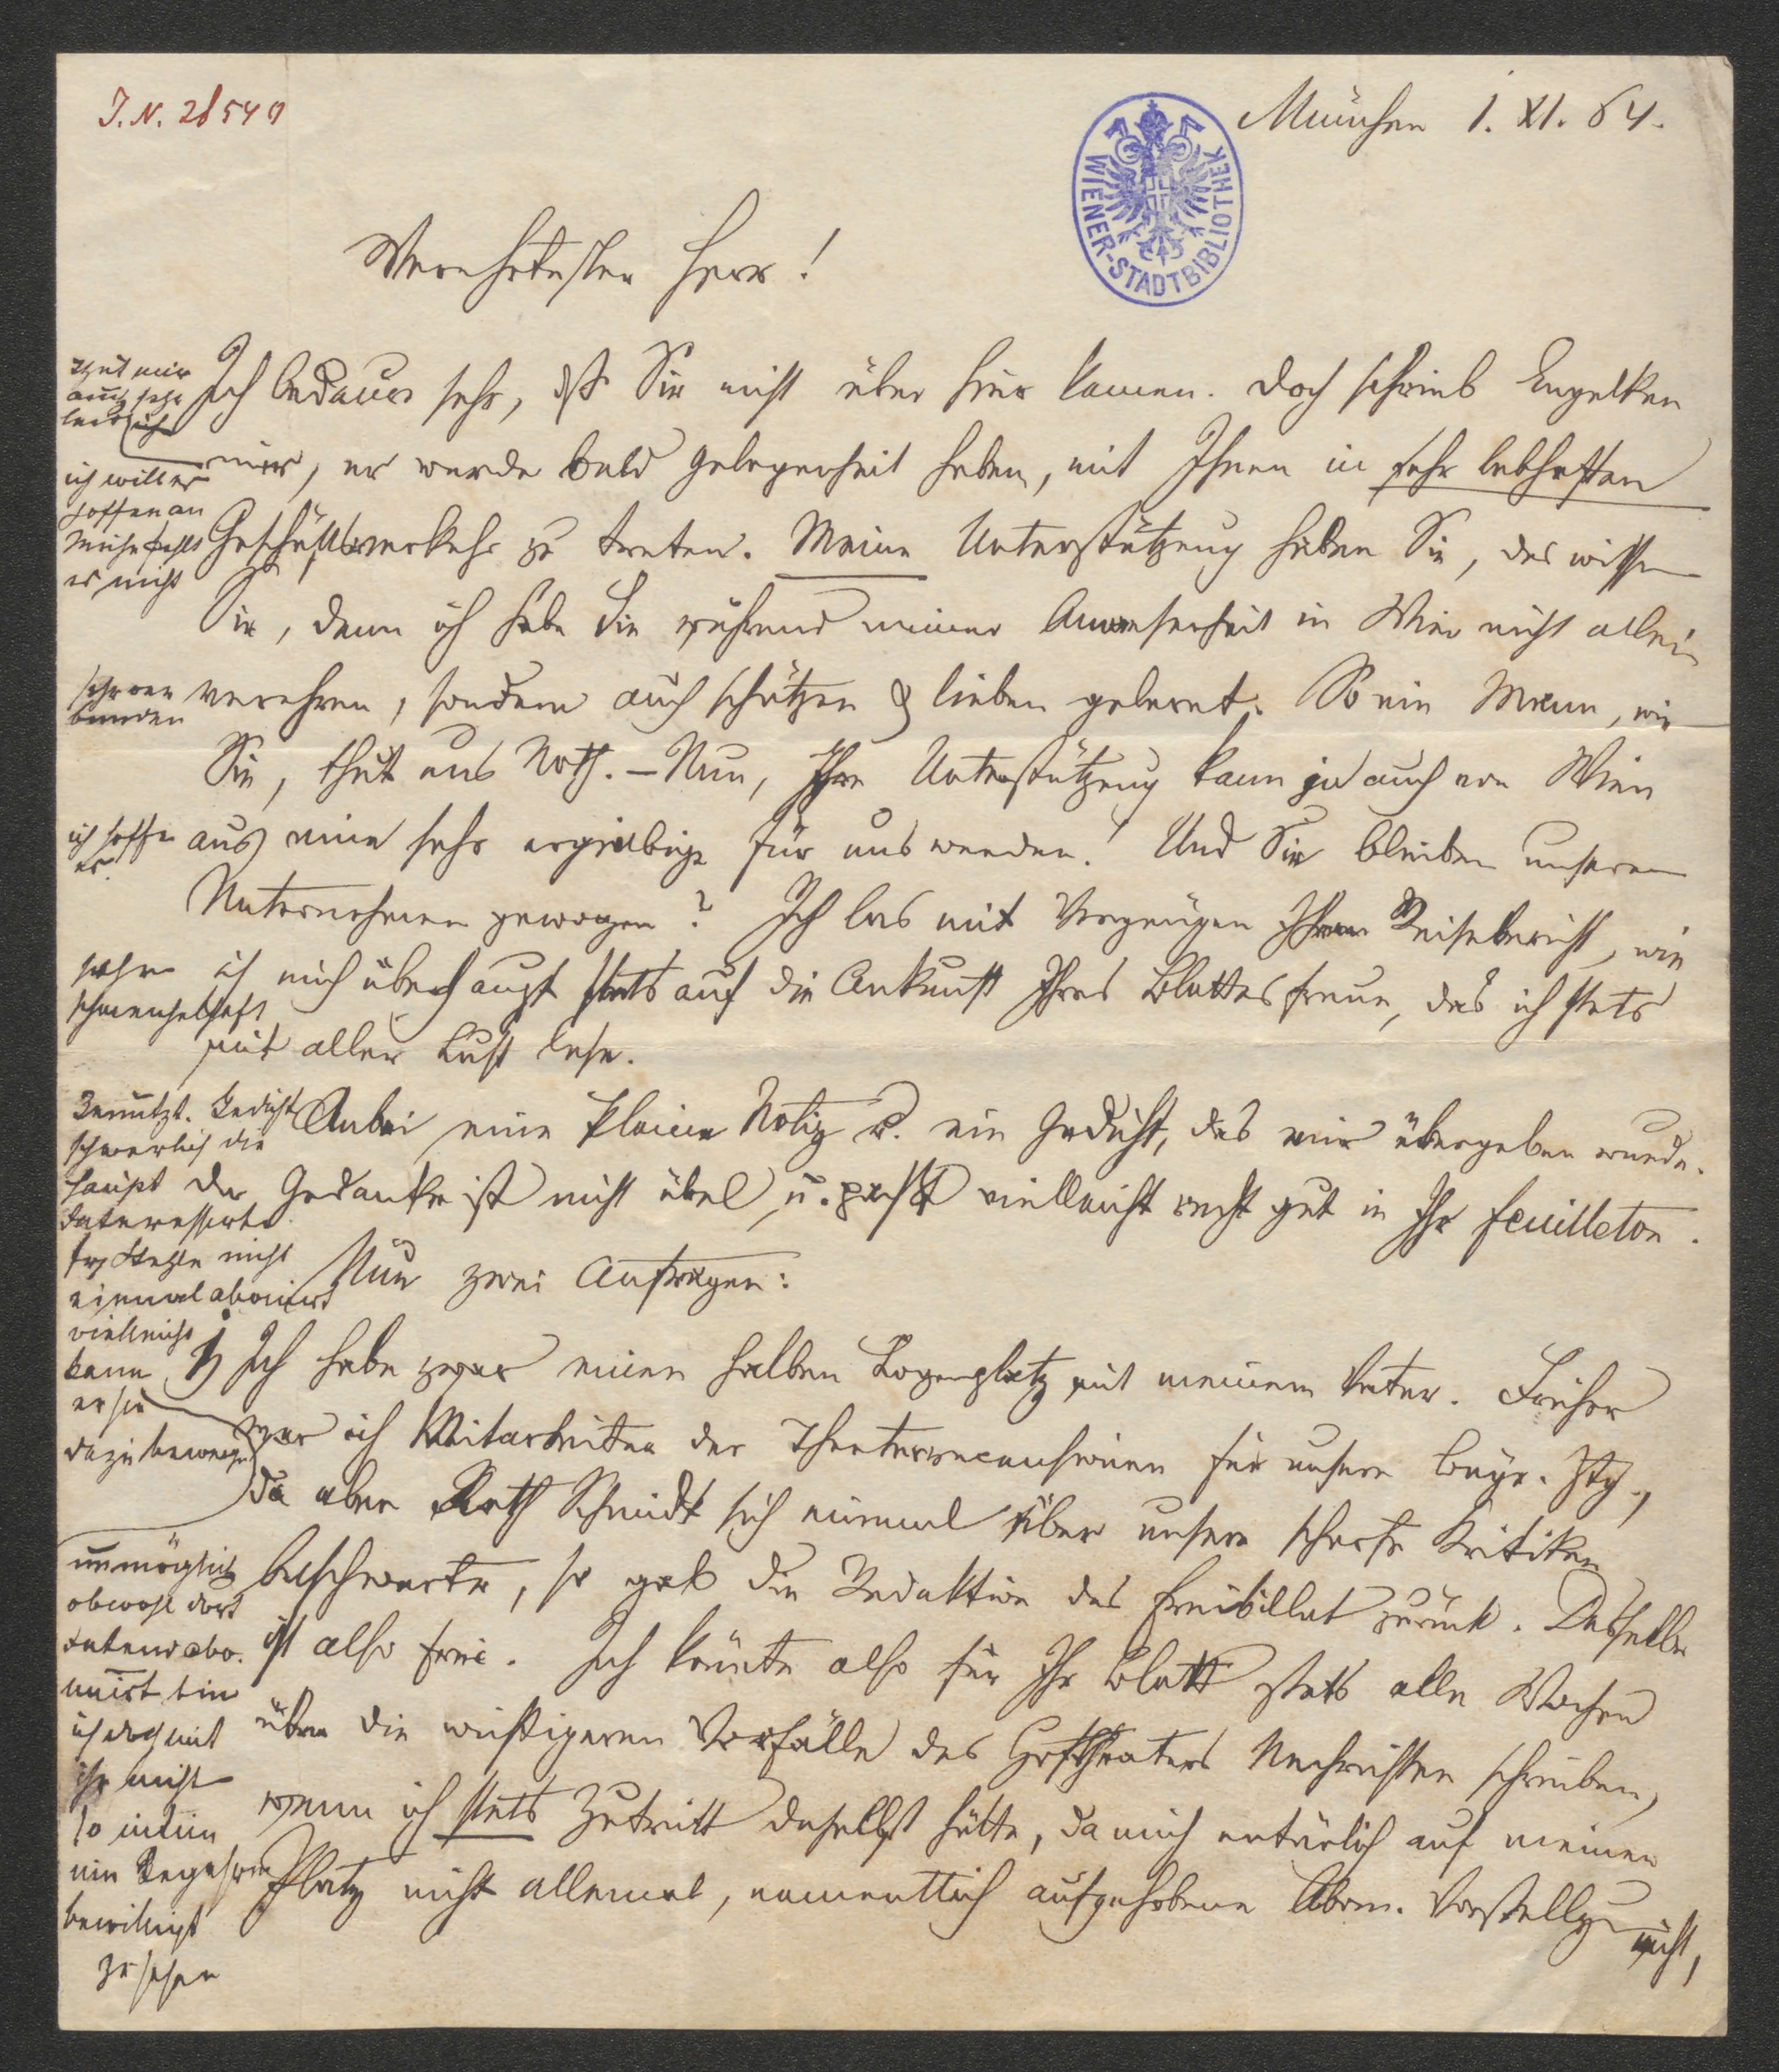 J.N. 28540
München 1. XI. 64.
WIENER-STADTBIBLIOTHEK
Verehrtester Herr!
Ich bedaure sehr, dß Sie nicht über hier kamen. Doch schrieb Engelken
mir, er werde bald Gelegenheit haben, mit Ihnen in sehr lebhaften
Geschäftsverkehr zu treten. Meine Unterstützung haben Sie, das wissen
Sie, denn ich habe Sie während meiner Anwesenheit in Wien nicht allein
verehren, sondern auch schätzen & lieben gelernt. So ein Mann, wie
Sie, thut uns Noth. – Nun, Ihre Unterstützung kann ja auch von Wien
aus eine sehr ergiebige für uns werden! Und Sie bleiben unserem
Unternehmen gewogen? Ich las mit Vergnügen Ihren Reisebericht, wie
ich mich überhaupt stets auf die Ankunft Ihres Blattes freue, das ich stets
mit aller Lust lese.
Anbei eine kleine Notiz u. ein Gedicht, das mir übergeben wurde.
Der Gedanke ist nicht übel u. paßt vielleicht recht gut in Ihr feuilleton.
Nun zwei Anfragen:
1, Ich habe zwar einen halben Logenplatz mit meinem Vater. Früher
war ich Mitarbeiter der Theaterrecensionen für unsere Bayr. Ztg.,
da aber Rath Schmidt sich einmal über unsere scharfe Kritiken
beschwerte, so gab die Redaktion das Freibillet zurück. Dasselbe
ist also frei. Ich könnte also für Ihr Blatt stets alle Wochen
über die wichtigeren Vorfälle des Hoftheaters Nachrichten schreiben,
wenn ich stets Zutritt daselbst hätte, da mich natürlich auf meinen
Platz nicht allemal, namentlich aufgehobene Abon. Vorstellgn
nicht,
thut mir
auch sehr
leid
ich will es
hoffen an
Mühe fehlt
es nicht
sehr ver
bunden
ich hoffe
es.
sehr
schmeichelhaft
Benützt. Gedicht
schwerlich die
haupt
Interessirte
Fr. Stehle nicht
einmal abonirt
vielleicht
kann
er sie
dazu bewegen
unmöglich
obwohl dort
Intend. abo.
nirt bin
ich doch mit
ihr nicht
so intim
ein Begehren
bewilligt
zu sehen